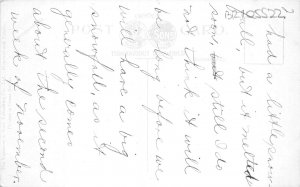 had a little snow-
fall, but it melted
soon, but still I do
not think it will
be long before we
will have a big
snowfall, as it
generally comes
about the second
week of November.
POST CARD
SONS